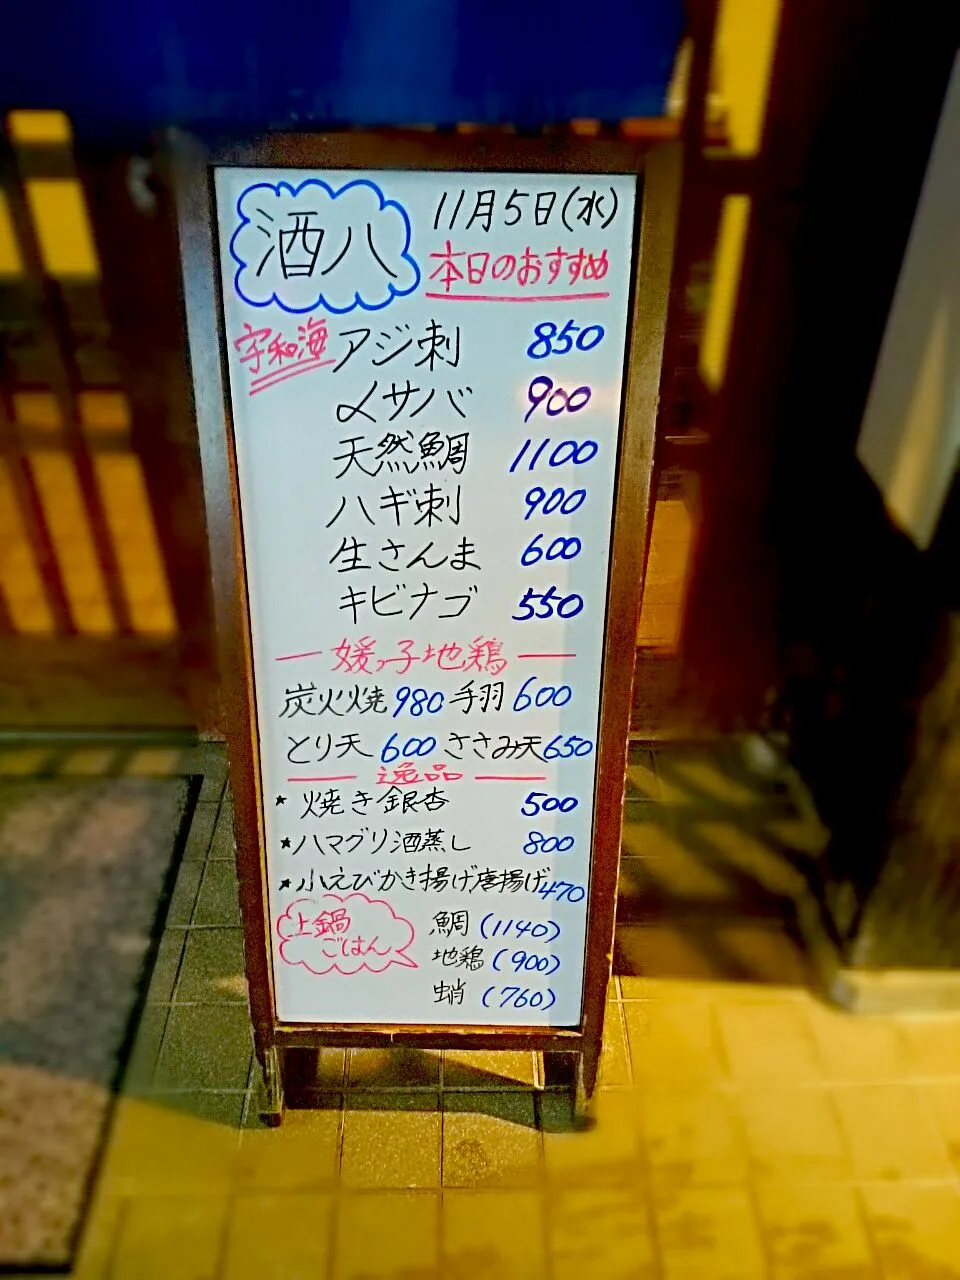 酒八
11月5日(水)
本日のおすすめ
宇和海 アジ刺 850
〆サバ 900
天然鯛 1100
ハギ刺 900
生さんま 600
キビナゴ 550
― 媛っ子地鶏 ―
炭火焼 980 手羽 600
とり天 600 ささみ天 650
― 逸品 ―
★ 焼き銀杏 500
★ハマグリ酒蒸し 800
★小えびかき揚げ唐揚げ 470
土鍋ごはん 鯛 (1140)
地鶏 (900)
蛸 (760)